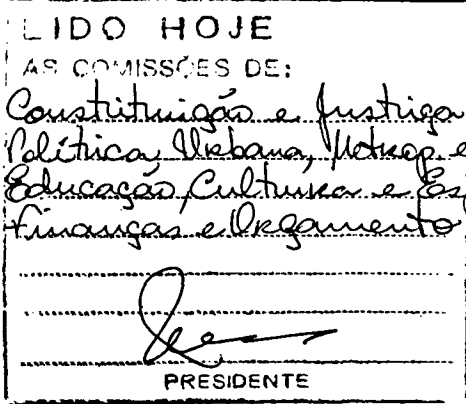 LIDO HOJE
AS COMISSÕES DE:
Constituição e Justiça
Política Urbana, Metrop e
Educação, Cultura e Es
Finanças e Orçamento
PRESIDENTE